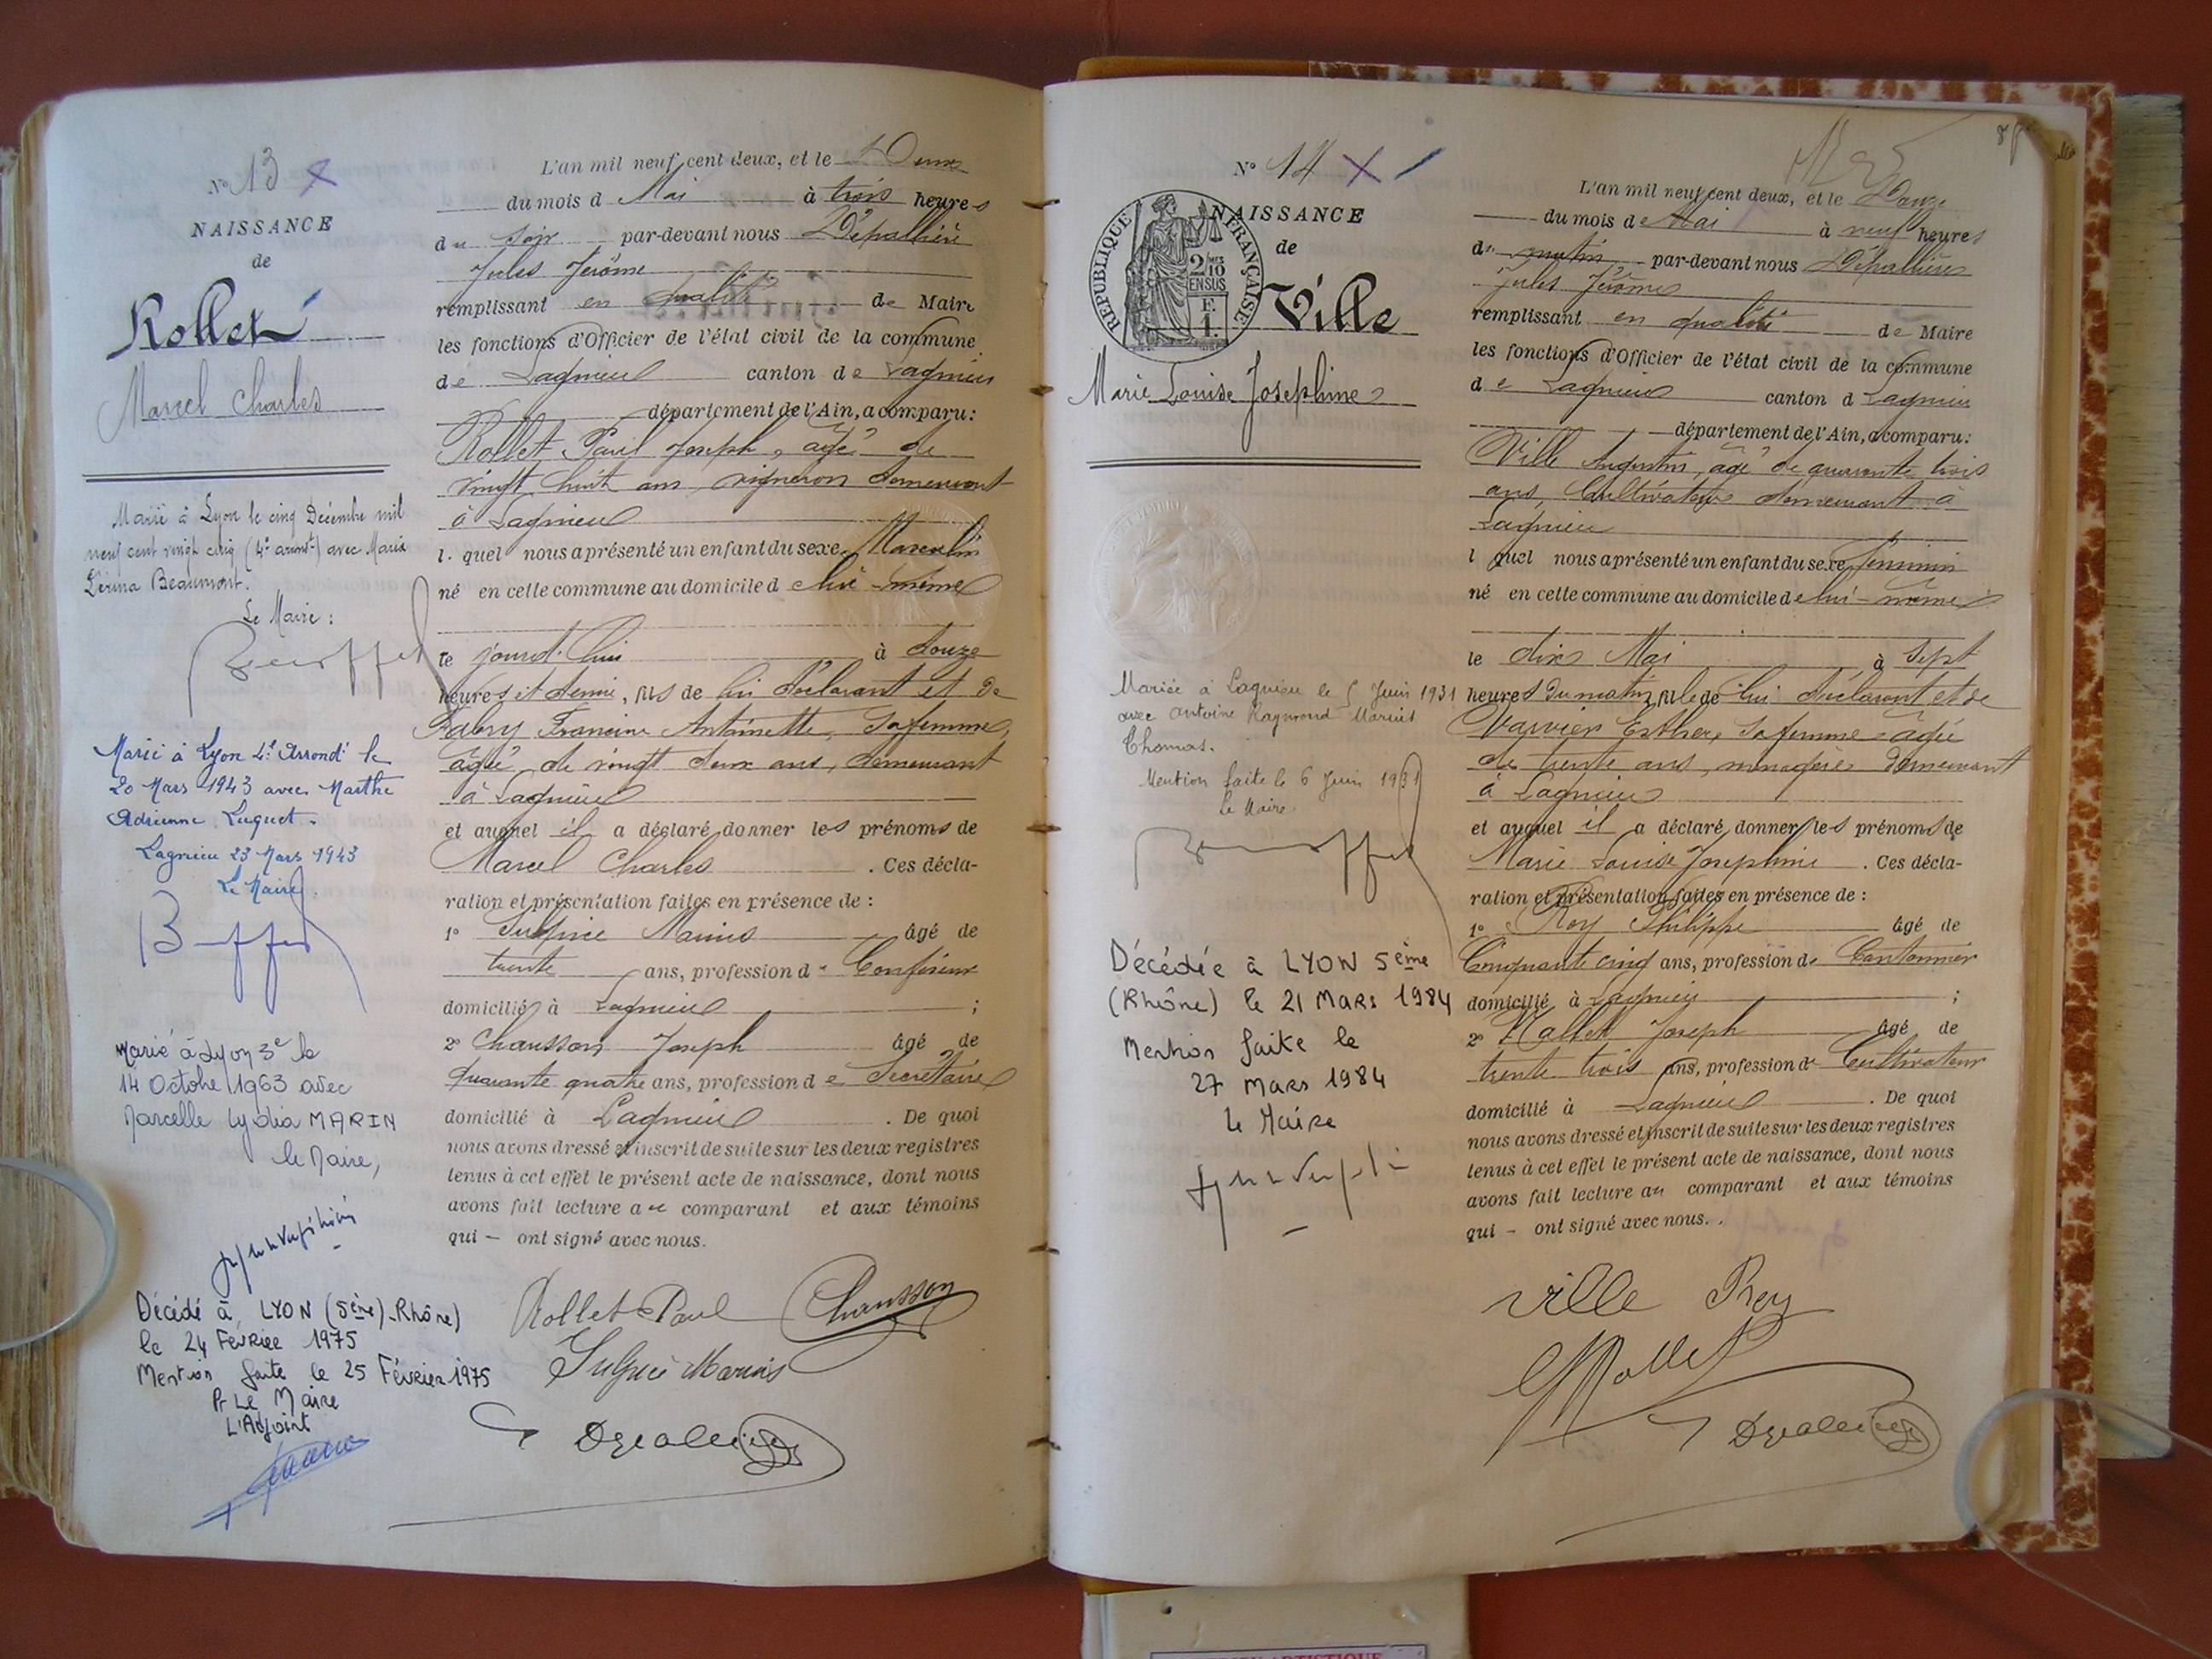 N° 13
NAISSANCE
de
Rollet
Marcel Charles
Marié à Lyon le cinq Décembre mil
neuf cent vingt cinq (4e arrondt) avec Maria
Beaumont.
Le Maire :
Marié à Lyon 4e Arrondt le
20 Mars 1943 avec Marthe
Adrienne Luquet.
Lagnieu 23 Mars 1943
Le Maire.
Marié à Lyon 3e le
14 Octobre 1963 avec
Marcelle Lydia MARIN
le Maire,
Décédé à LYON (5ème)-Rhône)
le 24 FÉVRIER 1975
Mention faite le 25 Février 1975
Pr Le Maire
L'Adjoint
L'an mil neuf cent deux, et le
du mois d Mai à trois heures
du soir par-devant nous Dépallière
Jules Jérôme
remplissant en qualité de Maire
les fonctions d'Officier de l'état civil de la commune
de Lagnieu canton de Lagnieu
département de l'Ain, a comparu :
Rollet Paul Joseph, âgé de
vingt huit ans, vigneron demeurant
à Lagnieu
l. quel nous a présenté un enfant du sexe Masculin
né en cette commune au domicile d lui-même
le jourd'hui à douze
heures et demie, fils de lui déclarant et de
Fabry Francine Antoinette, sa femme,
âgée de vingt deux ans, demeurant
à Lagnieu
et auquel il a déclaré donner les prénoms de
Marcel Charles . Ces décla-
ration et présentation faites en présence de :
1° Sulpice Marius âgé de
trente ans, profession de
domicilié à Lagnieu ;
2° Chausson Joseph âgé de
quarante quatre ans, profession de Secrétaire
domicilié à Lagnieu . De quoi
nous avons dressé et inscrit de suite sur les deux registres
tenus à cet effet le présent acte de naissance, dont nous
avons fait lecture au comparant et aux témoins
qui – ont signé avec nous.
Rollet Paul Chausson
Sulpice Marius
N° 14
NAISSANCE
de
RÉPUBLIQUE FRANÇAISE
2/10
EN SUS
F.
1.
Ville
Marie Louise Josephine
Mariée à Lagnieu le 5 Juin 1931
avec Antoine Raymond Marius
Thomas.
Mention faite le 6 Juin 1931
Le Maire
Décédée à LYON 5ème
(Rhône) le 21 MARS 1984
Mention faite le
27 MARS 1984
Le Maire
L'an mil neuf cent deux, et le Douze
du mois de Mai à neuf heures
du matin par-devant nous Dépallière
Jules Jérôme
remplissant en qualité de Maire
les fonctions d'Officier de l'état civil de la commune
de Lagnieu canton d Lagnieu
département de l'Ain, a comparu :
Ville Augustin, âgé de quarante trois
ans, Cultivateur demeurant à
Lagnieu
l quel nous a présenté un enfant du sexe féminin
né en cette commune au domicile de lui-même
le dix Mai à sept
heures du matin, fille de lui déclarant et de
Varvier Esther, sa femme âgée
de trente ans, ménagère demeurant
à Lagnieu
et auquel il a déclaré donner les prénoms de
Marie Louise Josephine . Ces décla-
ration et présentation faites en présence de :
1° Rey Philippe âgé de
Cinquante cinq ans, profession de Cantonnier
domicilié à Lagnieu ;
2° Mallet Joseph âgé de
trente trois ans, profession de Cultivateur
domicilié à Lagnieu . De quoi
nous avons dressé et inscrit de suite sur les deux registres
tenus à cet effet le présent acte de naissance, dont nous
avons fait lecture au comparant et aux témoins
qui – ont signé avec nous.
Ville Rey
Mallet